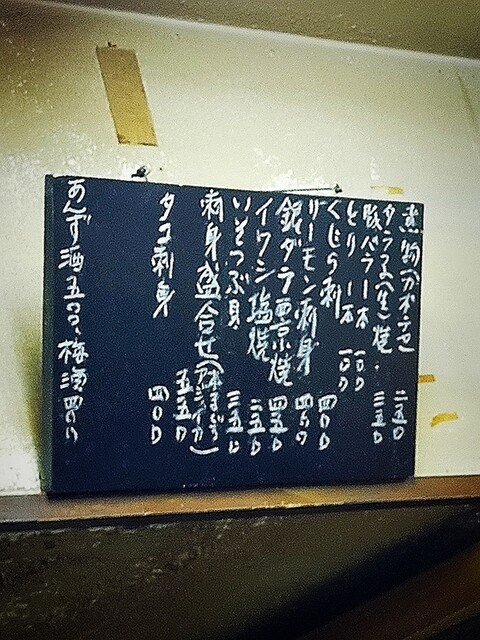 煮物(カボチャ) 二五〇
タラコ(生)焼・ 三五〇
豚バラ一本 一〇〇
とり一本 一〇〇
くじら刺 四〇〇
サーモン刺身 四五〇
銀ダラ西京焼 四五〇
イワシ塩焼 二五〇
いそつぶ貝 三五〇
刺身盛合せ(本まぐろ アジ イカ) 五五〇
タコ刺身 四〇〇
あんず酒五〇〇、梅酒四〇〇